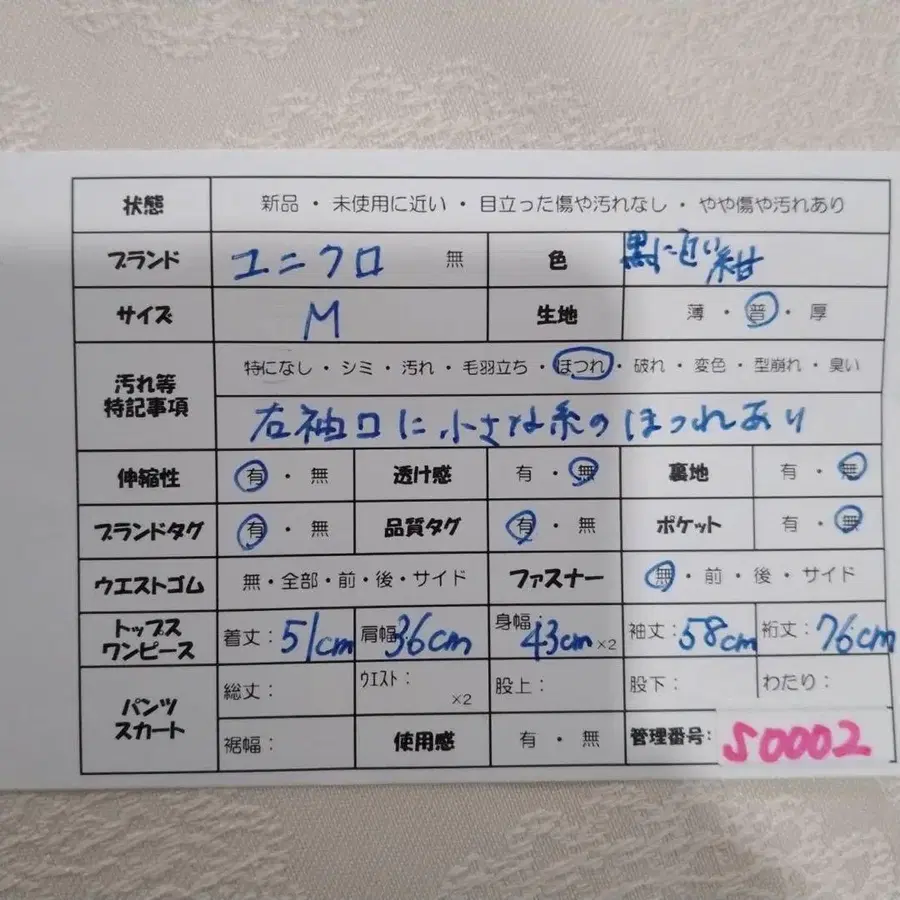 状態 新品 ・ 未使用に近い ・ 目立った傷や汚れなし ・ やや傷や汚れあり
ブランド ユニクロ 無 色 黒に近い紺
サイズ M 生地 薄 ・ 普 ・ 厚
汚れ等
特記事項
特になし ・ シミ ・ 汚れ ・ 毛羽立ち ・ ほつれ ・ 破れ ・ 変色 ・ 型崩れ ・ 臭い
右袖口に小さな糸のほつれあり
伸縮性 有 ・ 無 透け感 有 ・ 無 裏地 有 ・ 無
ブランドタグ 有 ・ 無 品質タグ 有 ・ 無 ポケット 有 ・ 無
ウエストゴム 無・全部・前・後・サイド ファスナー 無 ・ 前 ・ 後 ・ サイド
トップス
ワンピース
着丈：51cm 肩幅：36cm 身幅：43cm×2 袖丈：58cm 裄丈：76cm
パンツ
スカート
総丈： ウエスト： ×2 股上： 股下： わたり：
裾幅： 使用感 有 ・ 無 管理番号： S0002